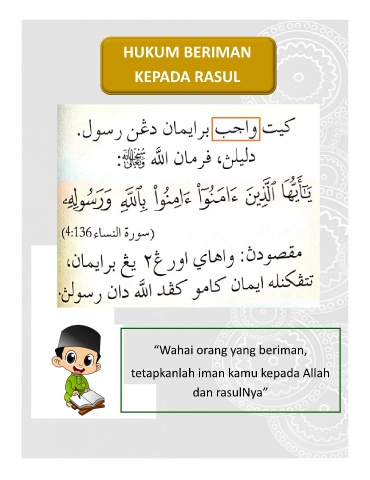 HUKUM BERIMAN
KEPADA RASUL
كيت واجب برايمان دڠن رسول.
دليلڽ، فرمان الله ﷻ:
يَـٰٓأَيُّهَا ٱلَّذِينَ ءَامَنُوٓا۟ ءَامِنُوا۟ بِٱللَّهِ وَرَسُولِهِۦ
(سورة النساء 4:136)
مقصودڽ: واهاي اورڠ٢ يڠ برايمان،
تتڤكنله ايمان كامو كڤد الله دان رسولڽ.
“Wahai orang yang beriman,
tetapkanlah iman kamu kepada Allah
dan rasulNya”